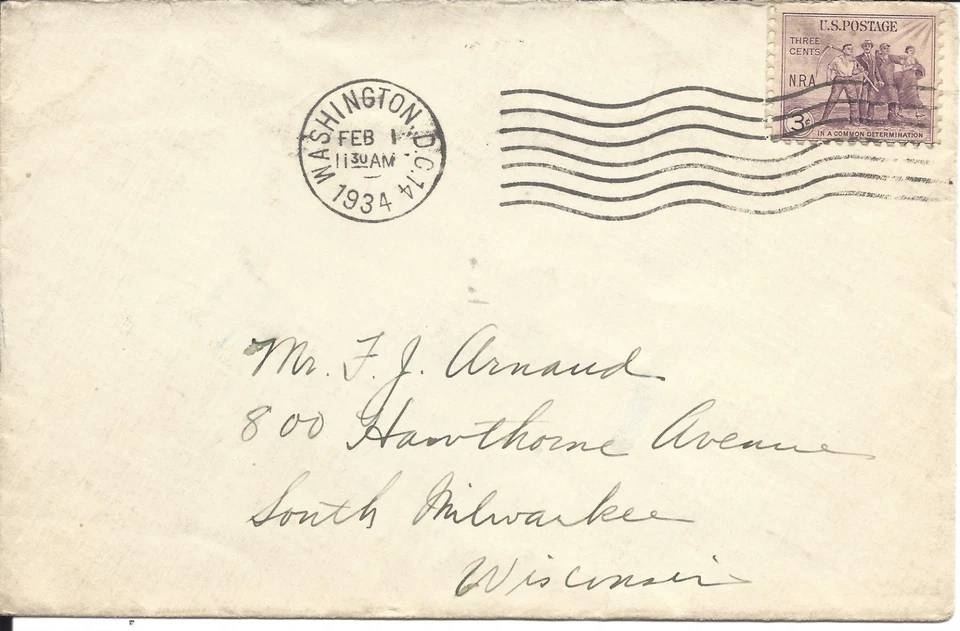 U.S. POSTAGE
THREE
CENTS
N.R.A.
3c
IN A COMMON DETERMINATION
WASHINGTON, D.C. 14
FEB 1
11 30 AM
1934
Mr. F. J. Arnaud
800 Hawthorne Avenue
South Milwaukee
Wisconsin